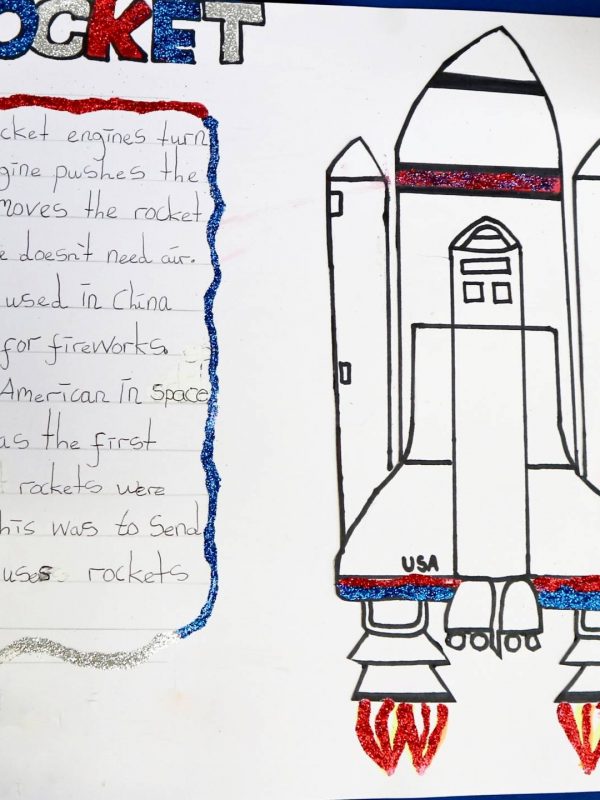 OCKET
cket engines turn
gine pushes the
moves the rocket
e doesn't need air.
used in China
for fireworks.
American in space
as the first
t rockets were
his was to Send
uses rockets
USA